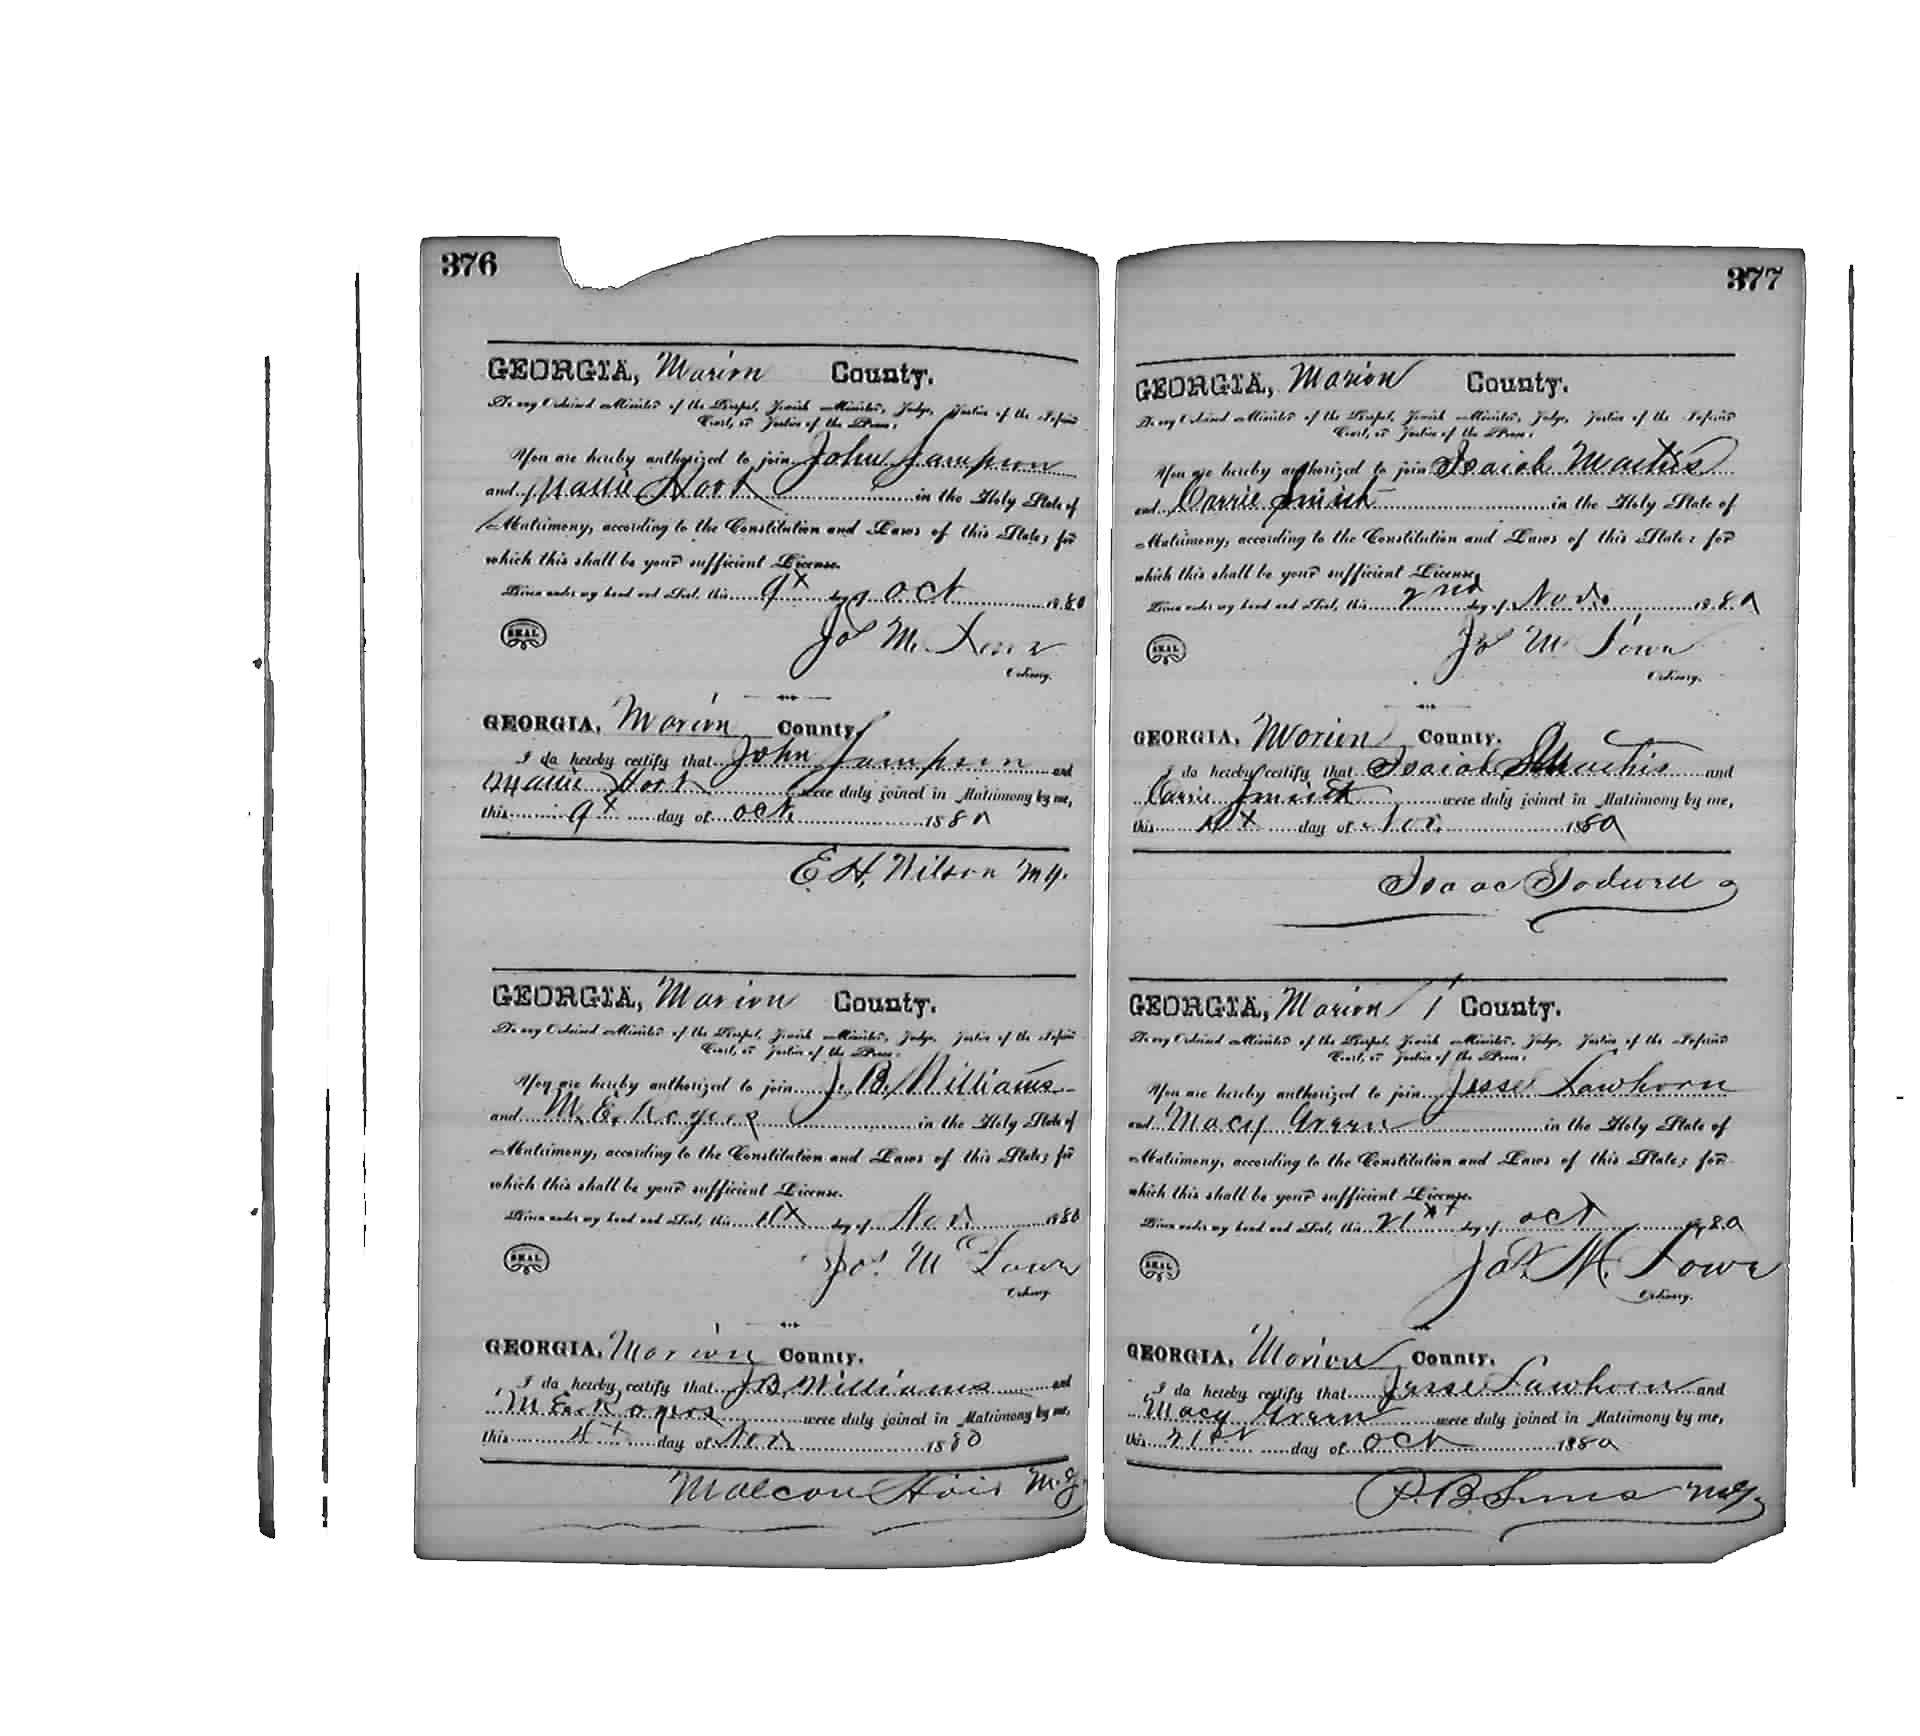 376
GEORGIA, Marion County.
To any Ordained Minister of the Gospel, Jewish Minister, Judge, Justice of the Inferior
Court, or Justice of the Peace:
You are hereby authorized to join John Sampson
and in the Holy State of
Matrimony, according to the Constitution and Laws of this State; for
which this shall be your sufficient License.
Given under my hand and Seal, this 9x day of Oct 1880
SEAL
Jas M. Lowe
Ordinary.
GEORGIA, Marion County.
I do hereby certify that John Sampson and
were duly joined in Matrimony by me,
this 9x day of Oct. 1880
E H, Wilson M G.
GEORGIA, Marion County.
To any Ordained Minister of the Gospel, Jewish Minister, Judge, Justice of the Inferior
Court, or Justice of the Peace:
You are hereby authorized to join J. B. Williams
and M. E. Rogers in the Holy State of
Matrimony, according to the Constitution and Laws of this State; for
which this shall be your sufficient License.
Given under my hand and Seal, this 4x day of Nov. 1880
SEAL
Jas. M Lowe
Ordinary.
GEORGIA, Marion County.
I do hereby certify that J B Williams and
M E. Rogers were duly joined in Matrimony by me,
this 4x day of Nov 1880
M. G.
377
GEORGIA, Marion County.
To any Ordained Minister of the Gospel, Jewish Minister, Judge, Justice of the Inferior
Court, or Justice of the Peace:
You are hereby authorized to join Isaiah Mathis
and Carrie Smith in the Holy State of
Matrimony, according to the Constitution and Laws of this State: for
which this shall be your sufficient License,
Given under my hand and Seal, this 2nd day of Nov. 1880
SEAL
Jas M Lowe
Ordinary.
GEORGIA, Marion County.
I do hereby certify that Isaiah Mathis and
Carrie Smith were duly joined in Matrimony by me,
this 4x day of Nov. 1880
Isaac
GEORGIA, Marion County.
To any Ordained Minister of the Gospel, Jewish Minister, Judge, Justice of the Inferior
Court, or Justice of the Peace:
You are hereby authorized to join Jesse Lawhorn
and Macy Green in the Holy State of
Matrimony, according to the Constitution and Laws of this State; for
which this shall be your sufficient License.
Given under my hand and Seal, this 21st day of Oct 1880
SEAL
Jas. M. Lowe
Ordinary.
GEORGIA, Marion County.
I do hereby certify that Jesse Lawhorn and
Macy Green were duly joined in Matrimony by me,
this 21st day of Oct 1880
P. B. Sims M G